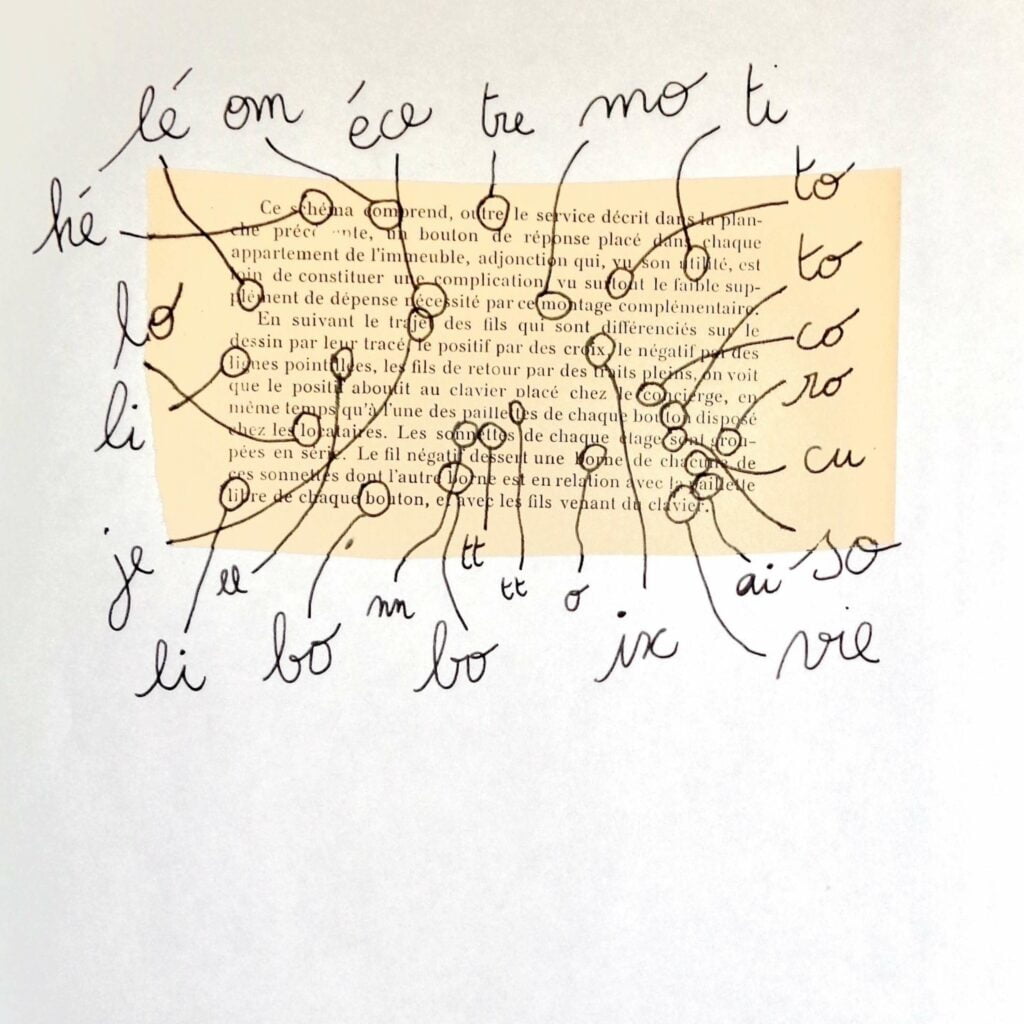 lé om éce tre mo ti
hé
to
to
lo
co
li
ro
cu
Ce schéma comprend, outre le service décrit dans la plan-
che un bouton de réponse placé dans chaque
appartement de l'immeuble, adjonction qui, vu son utilité, est
loin de constituer une complication, vu surtout le faible sup-
plément de dépense nécessité par ce montage complémentaire.
En suivant le trajet des fils qui sont différenciés sur le
dessin par leur tracé, le positif par des croix, le négatif par des
lignes pointillées, les fils de retour par des traits pleins, on voit
que le positif aboutit au clavier placé chez le concierge, en
même temps qu'à l'une des paillettes de chaque bouton disposé
chez les locataires. Les sonnettes de chaque étage sont grou-
pées en série. Le fil négatif dessert une borne de chacune de
ces sonnettes dont l'autre borne est en relation avec la paillette
libre de chaque bouton, et avec les fils venant du clavier.
je ee nn tt tt o ai so
li bo bo ix vie